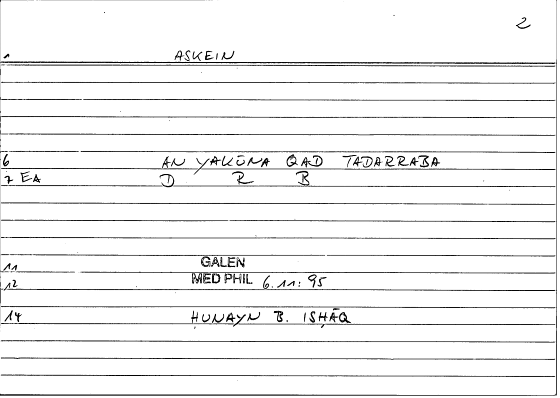 2
1 ASKEIN
6 AN YAKŪNA QAD TADARRABA
7 EA D R B
11 GALEN
12 MED PHIL 6.11:95
14 ḤUNAYN B. ISḤĀQ